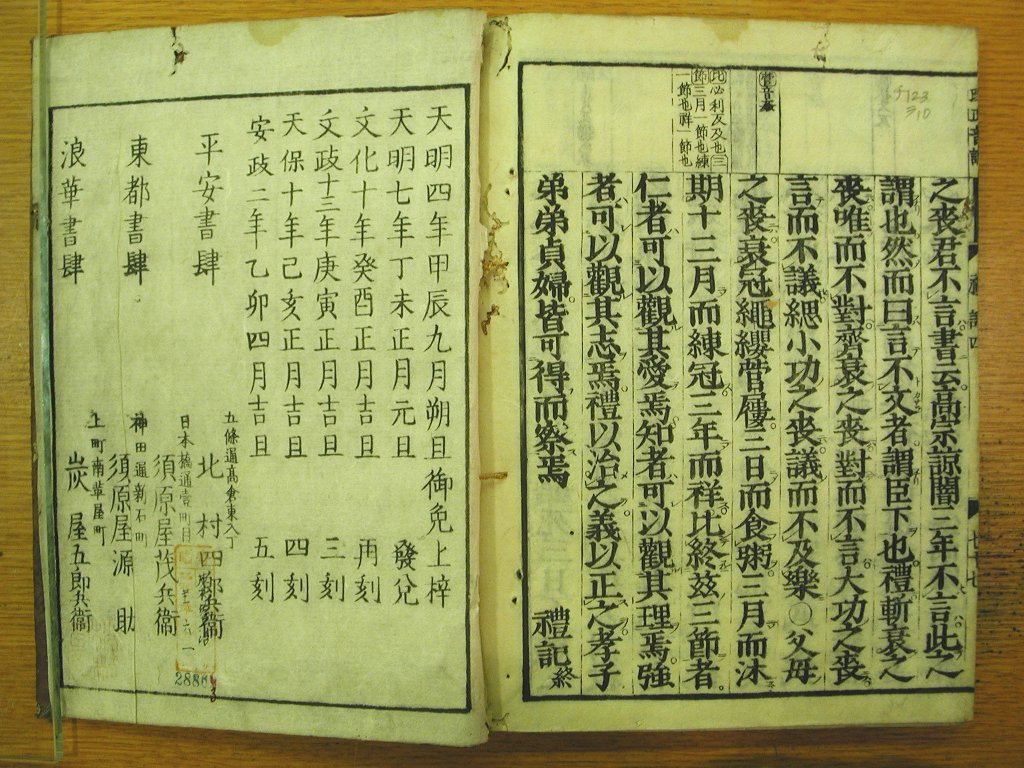 之喪君不言書云高宗諒闇三年不言此之
謂也然而曰言不文者謂臣下也禮斬衰之
喪唯而不對齊衰之喪對而不言大功之喪
言而不議緦小功之喪議而不及樂〇父母
之喪衰冠繩纓菅屨三日而食粥三月而沐
期十三月而練冠三年而祥比終茲三節者
仁者可以觀其愛焉知者可以觀其理焉強
者可以觀其志焉禮以治之義以正之孝子
弟弟貞婦皆可得而察焉
禮記終
菅音姦
比必利反及也三
節三月一節也練
一節也祥一節也
天明四年甲辰九月朔旦御免上梓
天明七年丁未正月元旦 發兌
文化十年癸酉正月吉旦 再刻
文政十三年庚寅正月吉旦 三刻
天保十年己亥正月吉旦 四刻
安政二年乙卯四月吉旦 五刻
平安書肆
五條通高倉東入丁
北村四郎兵衞
東都書肆
日本橋通壹町目
須原屋茂兵衞
神田通新石町
須原屋源助
浪華書肆
上町南革屋町
炭屋五郎兵衞
2886